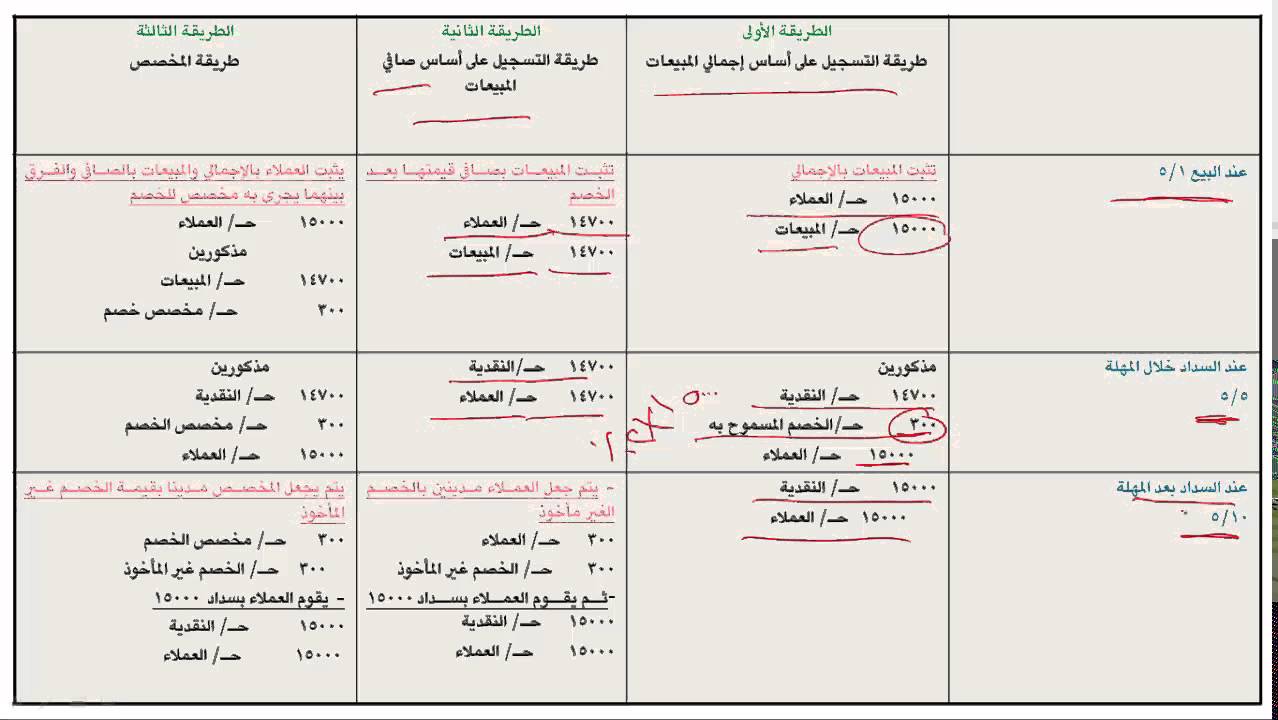 الطريقة الأولى
طريقة التسجيل على أساس إجمالي المبيعات
الطريقة الثانية
طريقة التسجيل على أساس صافي
المبيعات
الطريقة الثالثة
طريقة المخصص
عند البيع ٥/١
تثبت المبيعات بالإجمالي
١٥٠٠٠ حـ/ العملاء
١٥٠٠٠ حـ/ المبيعات
تثبت المبيعات بصافي قيمتها بعد
الخصم
١٤٧٠٠ حـ/ العملاء
١٤٧٠٠ حـ/ المبيعات
يثبت العملاء بالإجمالي والمبيعات بالصافي والفرق
بينهما يجري به مخصص للخصم
١٥٠٠٠ حـ/ العملاء
مذكورين
١٤٧٠٠ حـ/ المبيعات
٣٠٠ حـ/ مخصص خصم
عند السداد خلال المهلة
٥/٥
مذكورين
١٤٧٠٠ حـ/ النقدية
٣٠٠ حـ/الخصم المسموح به
١٥٠٠٠ حـ/ العملاء
١٤٧٠٠ حـ/النقدية
١٤٧٠٠ حـ/ العملاء
مذكورين
١٤٧٠٠ حـ/ النقدية
٣٠٠ حـ/ مخصص الخصم
١٥٠٠٠ حـ/ العملاء
عند السداد بعد المهلة
٥/١٠
١٥٠٠٠ حـ/ النقدية
١٥٠٠٠ حـ/ العملاء
- يتم جعل العملاء مدينين بالخصم
الغير مأخوذ
٣٠٠ حـ/ العملاء
٣٠٠ حـ/ الخصم غير المأخوذ
-ثم يقوم العملاء بسداد ١٥٠٠٠
١٥٠٠٠ حـ/ النقدية
١٥٠٠٠ حـ/ العملاء
يتم يجعل المخصص مدينا بقيمة الخصم غير
المأخوذ
٣٠٠ حـ/ مخصص الخصم
٣٠٠ حـ/ الخصم غير المأخوذ
- يقوم العملاء بسداد ١٥٠٠٠
١٥٠٠٠ حـ/ النقدية
١٥٠٠٠ حـ/ العملاء